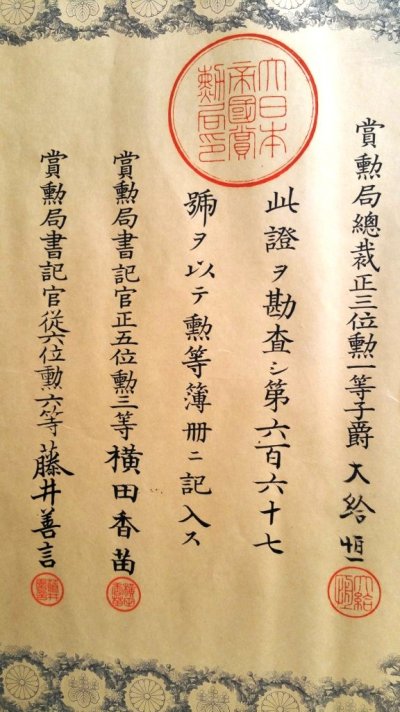 賞勲局總裁正三位勲一等子爵大給恒
大給恒
大日本
帝國賞
勲局印
此證ヲ勘査シ第六百六十七
號ヲ以テ勲等簿册ニ記入ス
賞勲局書記官正五位勲三等横田香苗
賞勲局書記官從六位勲六等藤井善言